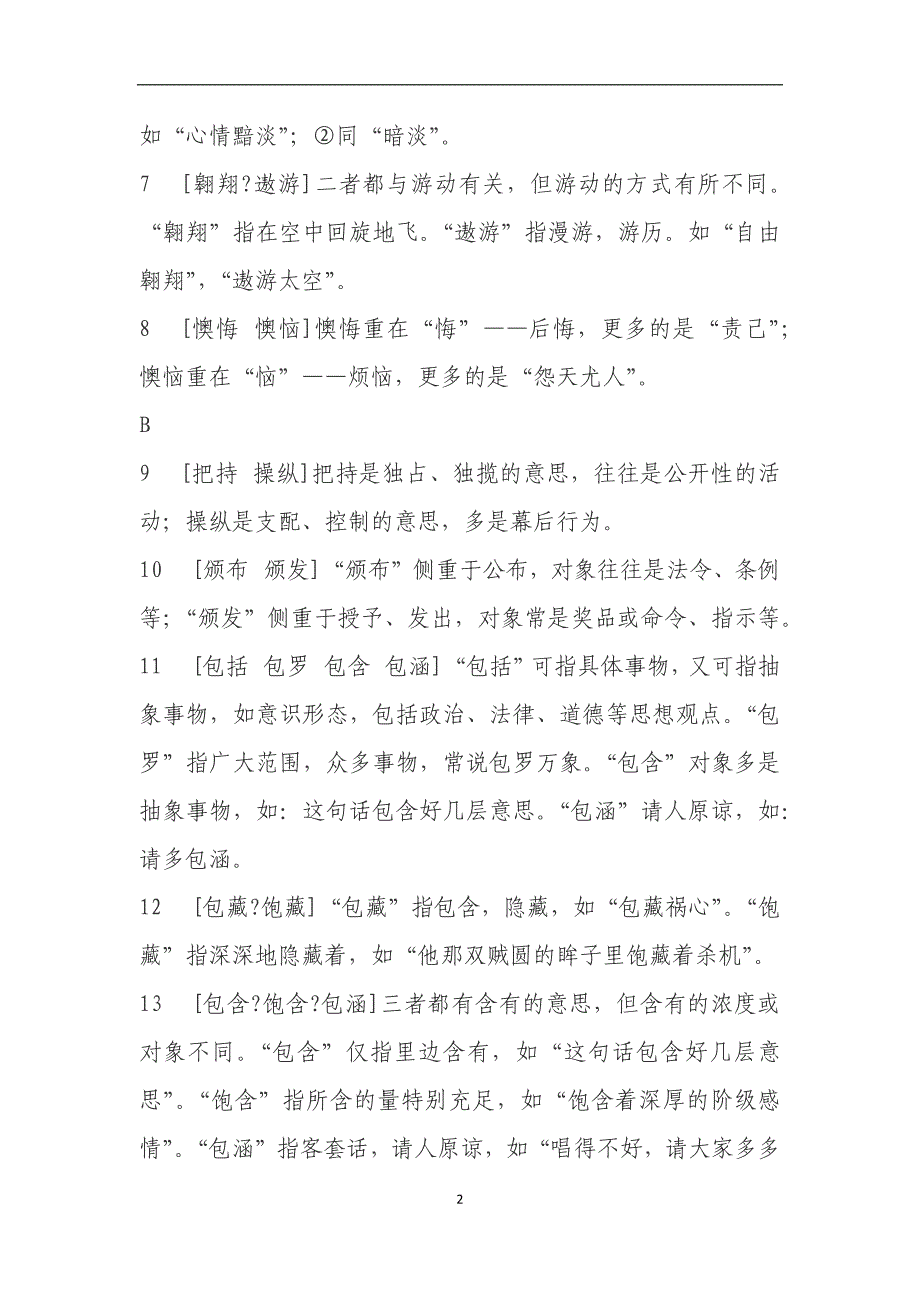 如“心情黯淡”；②同“暗淡”。
7 [翱翔?遨游]二者都与游动有关，但游动的方式有所不同。
“翱翔”指在空中回旋地飞。“遨游”指漫游，游历。如“自由
翱翔”，“遨游太空”。
8 [懊悔 懊恼]懊悔重在“悔”——后悔，更多的是“责己”；
懊恼重在“恼”——烦恼，更多的是“怨天尤人”。
B
9 [把持 操纵]把持是独占、独揽的意思，往往是公开性的活
动；操纵是支配、控制的意思，多是幕后行为。
10 [颁布 颁发]“颁布”侧重于公布，对象往往是法令、条例
等；“颁发”侧重于授予、发出，对象常是奖品或命令、指示等。
11 [包括 包罗 包含 包涵]“包括”可指具体事物，又可指抽
象事物，如意识形态，包括政治、法律、道德等思想观点。“包
罗”指广大范围，众多事物，常说包罗万象。“包含”对象多是
抽象事物，如：这句话包含好几层意思。“包涵”请人原谅，如：
请多包涵。
12 [包藏?饱藏]“包藏”指包含，隐藏，如“包藏祸心”。“饱
藏”指深深地隐藏着，如“他那双贼圆的眸子里饱藏着杀机”。
13 [包含?饱含?包涵]三者都有含有的意思，但含有的浓度或
对象不同。“包含”仅指里边含有，如“这句话包含好几层意
思”。“饱含”指所含的量特别充足，如“饱含着深厚的阶级感
情”。“包涵”指客套话，请人原谅，如“唱得不好，请大家多多
2